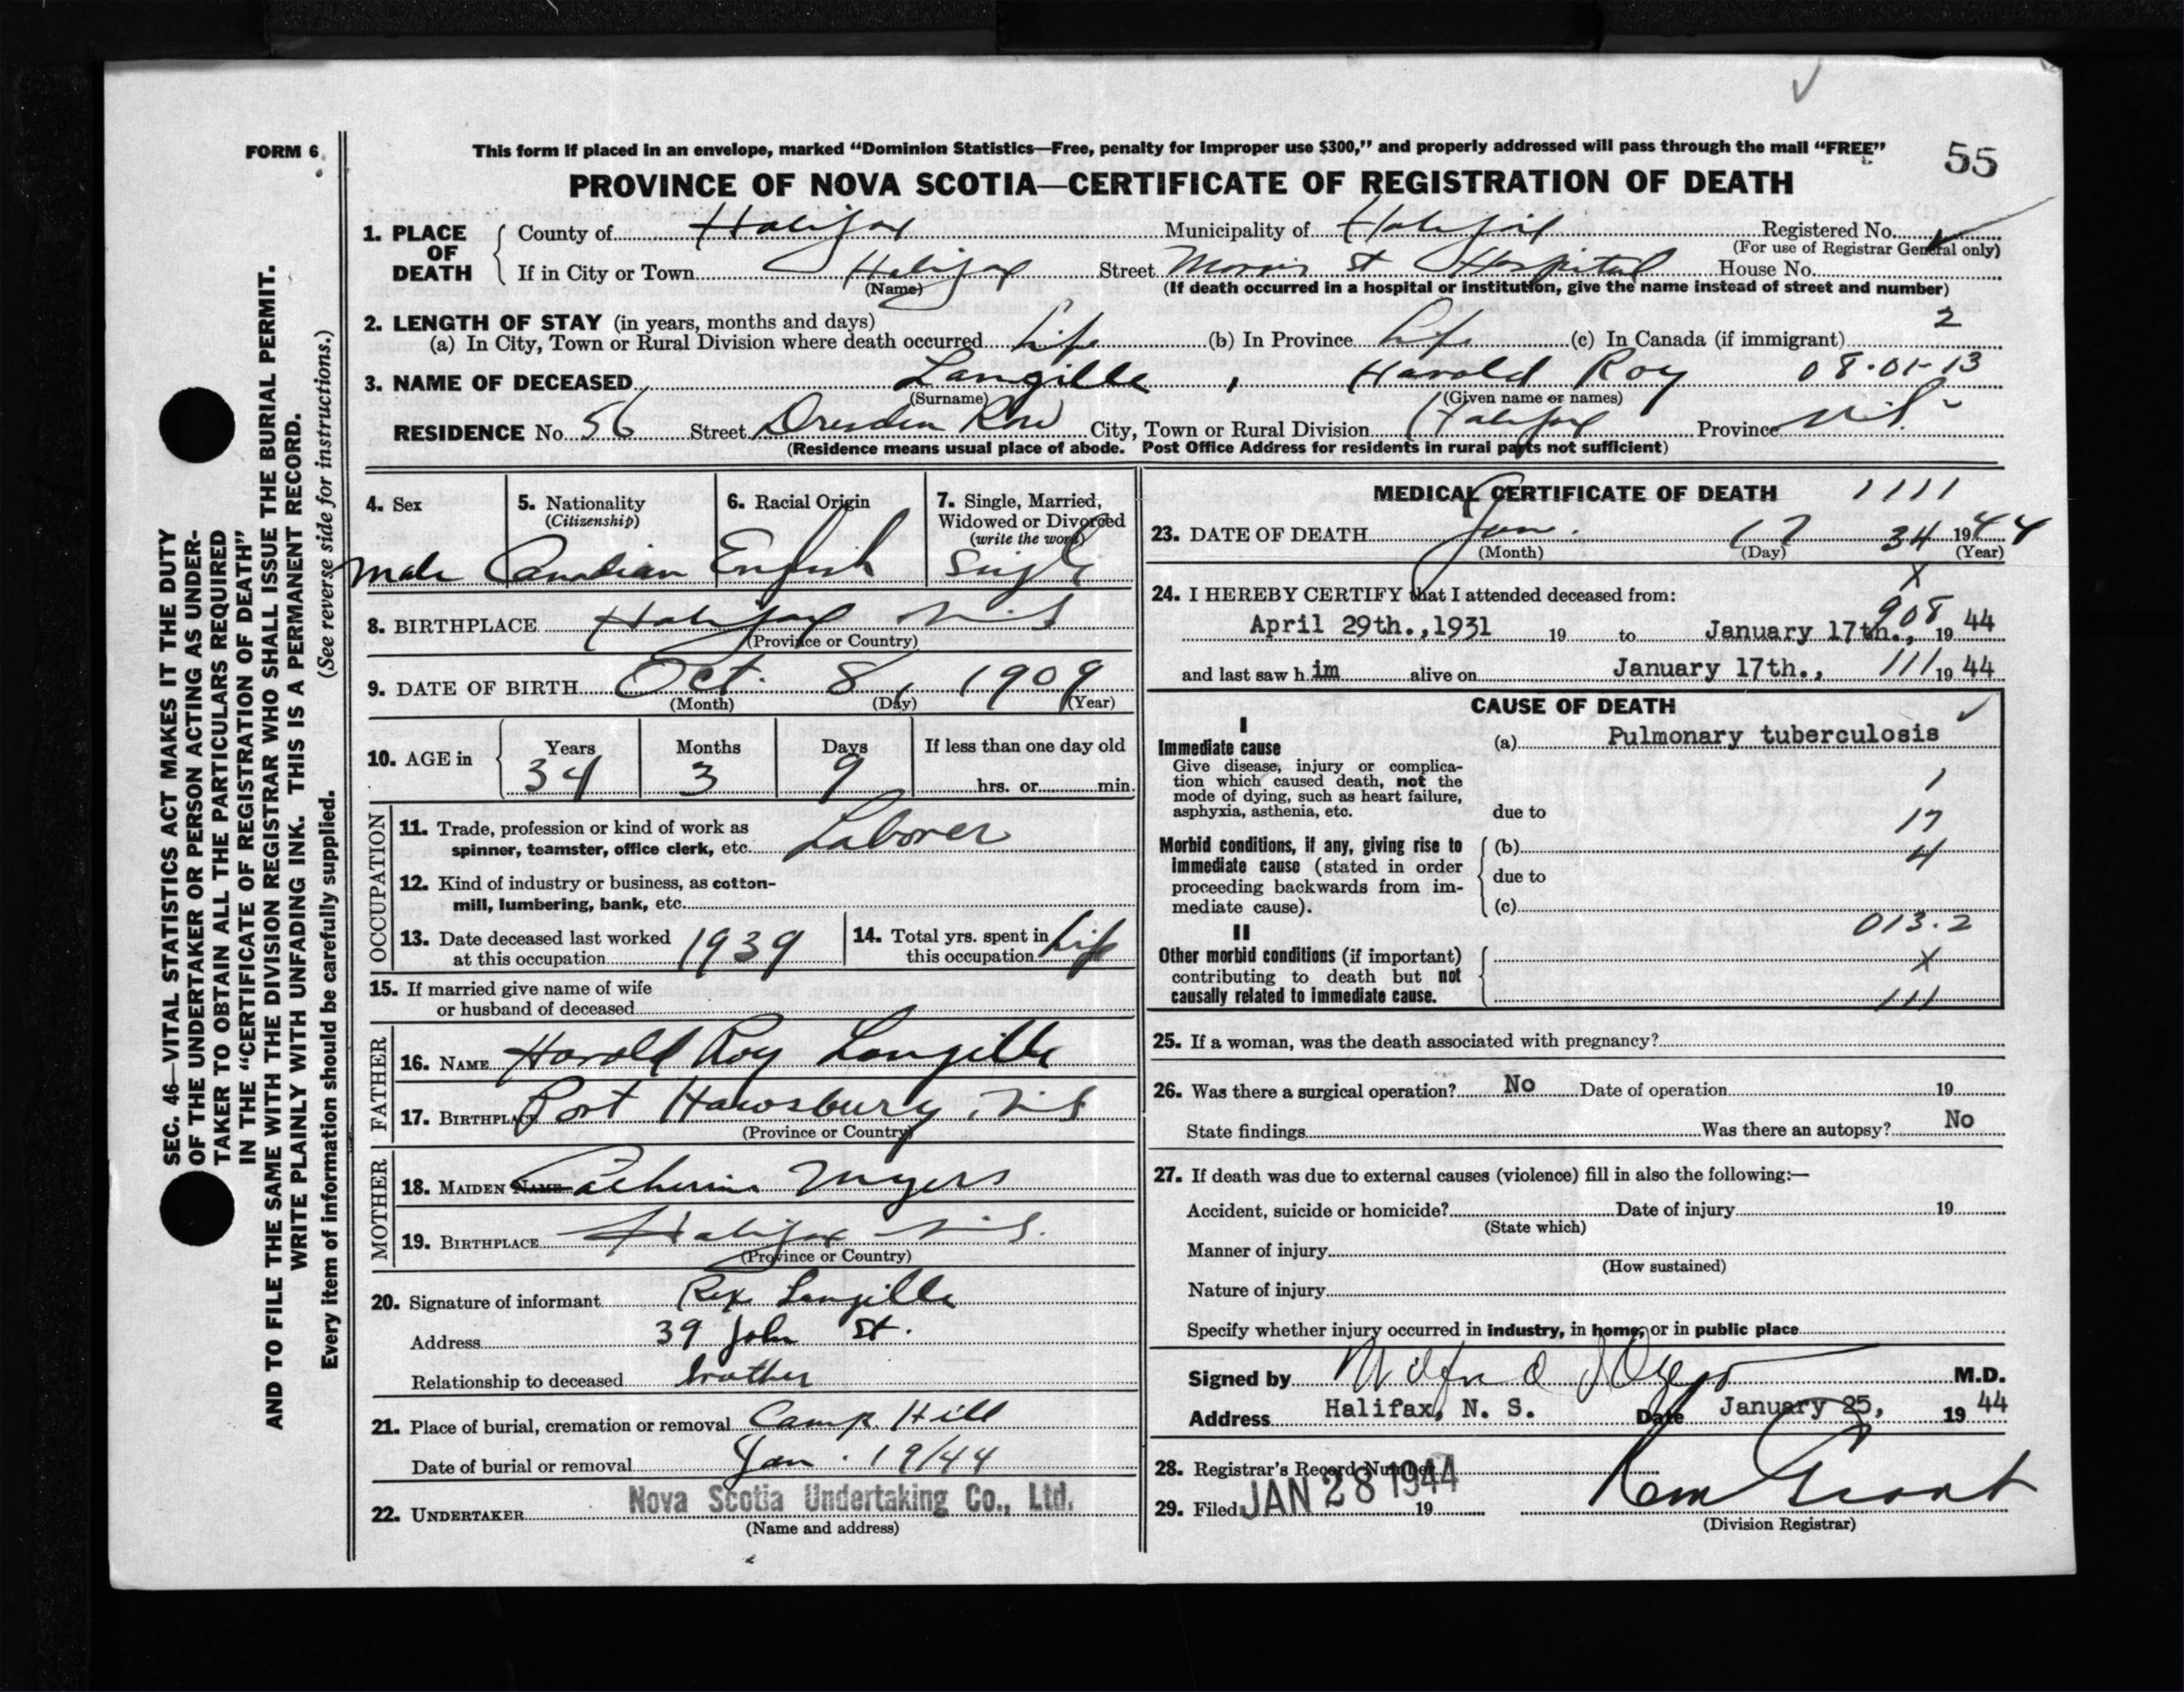 FORM 6
This form if placed in an envelope, marked “Dominion Statistics—Free, penalty for improper use $300,” and properly addressed will pass through the mail “FREE”
55
PROVINCE OF NOVA SCOTIA—CERTIFICATE OF REGISTRATION OF DEATH
1. PLACE OF DEATH
County of Halifax Municipality of Halifax Registered No.
(For use of Registrar General only)
If in City or Town Halifax Street Morris St Hospital House No.
(Name) (If death occurred in a hospital or institution, give the name instead of street and number)
2. LENGTH OF STAY (in years, months and days) 2
(a) In City, Town or Rural Division where death occurred Life (b) In Province Life (c) In Canada (if immigrant)
3. NAME OF DECEASED Langille, Harold Roy 08-01-13
(Surname) (Given name or names)
RESIDENCE No. 56 Street Dresden Row City, Town or Rural Division Halifax Province N.S.
(Residence means usual place of abode. Post Office Address for residents in rural parts not sufficient)
4. Sex
male
5. Nationality
(Citizenship)
Canadian
6. Racial Origin
English
7. Single, Married,
Widowed or Divorced
(write the word)
Single
8. BIRTHPLACE Halifax N.S
(Province or Country)
9. DATE OF BIRTH Oct. 8, 1909
(Month) (Day) (Year)
10. AGE in
Years Months Days If less than one day old
34 3 9 hrs. or min.
OCCUPATION
11. Trade, profession or kind of work as
spinner, teamster, office clerk, etc. Laborer
12. Kind of industry or business, as cotton-
mill, lumbering, bank, etc.
13. Date deceased last worked
at this occupation 1939
14. Total yrs. spent in
this occupation Life
15. If married give name of wife
or husband of deceased
FATHER
16. NAME Harold Roy Langille
17. BIRTHPLACE Port Hawsbury, N.S
(Province or Country)
MOTHER
18. MAIDEN NAME Catherine Myers
19. BIRTHPLACE Halifax N.S.
(Province or Country)
20. Signature of informant Rex Langille
Address 39 John St.
Relationship to deceased brother
21. Place of burial, cremation or removal Camp Hill
Date of burial or removal Jan. 19/44
22. UNDERTAKER Nova Scotia Undertaking Co., Ltd.
(Name and address)
MEDICAL CERTIFICATE OF DEATH 1111
23. DATE OF DEATH Jan. 17 34 1944
(Month) (Day) (Year)
X
24. I HEREBY CERTIFY that I attended deceased from:
908
April 29th.,1931 19 to January 17th., 19 44
and last saw h im alive on January 17th., 111 19 44
CAUSE OF DEATH
I
Immediate cause
Give disease, injury or complica-
tion which caused death, not the
mode of dying, such as heart failure,
asphyxia, asthenia, etc.
(a) Pulmonary tuberculosis
1
due to
17
Morbid conditions, if any, giving rise to
immediate cause (stated in order
proceeding backwards from im-
mediate cause).
(b)
4
due to
(c)
013.2
II
Other morbid conditions (if important)
contributing to death but not
causally related to immediate cause.
X
111
25. If a woman, was the death associated with pregnancy?
26. Was there a surgical operation? No Date of operation 19
State findings Was there an autopsy? No
27. If death was due to external causes (violence) fill in also the following:—
Accident, suicide or homicide? Date of injury 19
(State which)
Manner of injury
(How sustained)
Nature of injury
Specify whether injury occurred in industry, in home, or in public place
Signed by M.D.
Address Halifax, N. S. Date January 25, 19 44
28. Registrar's Record Number
29. Filed JAN 28 1944 19
Grant
(Division Registrar)
SEC. 46—VITAL STATISTICS ACT MAKES IT THE DUTY
OF THE UNDERTAKER OR PERSON ACTING AS UNDER-
TAKER TO OBTAIN ALL THE PARTICULARS REQUIRED
IN THE “CERTIFICATE OF REGISTRATION OF DEATH”
AND TO FILE THE SAME WITH THE DIVISION REGISTRAR WHO SHALL ISSUE THE BURIAL PERMIT.
WRITE PLAINLY WITH UNFADING INK. THIS IS A PERMANENT RECORD.
Every item of information should be carefully supplied. (See reverse side for instructions.)